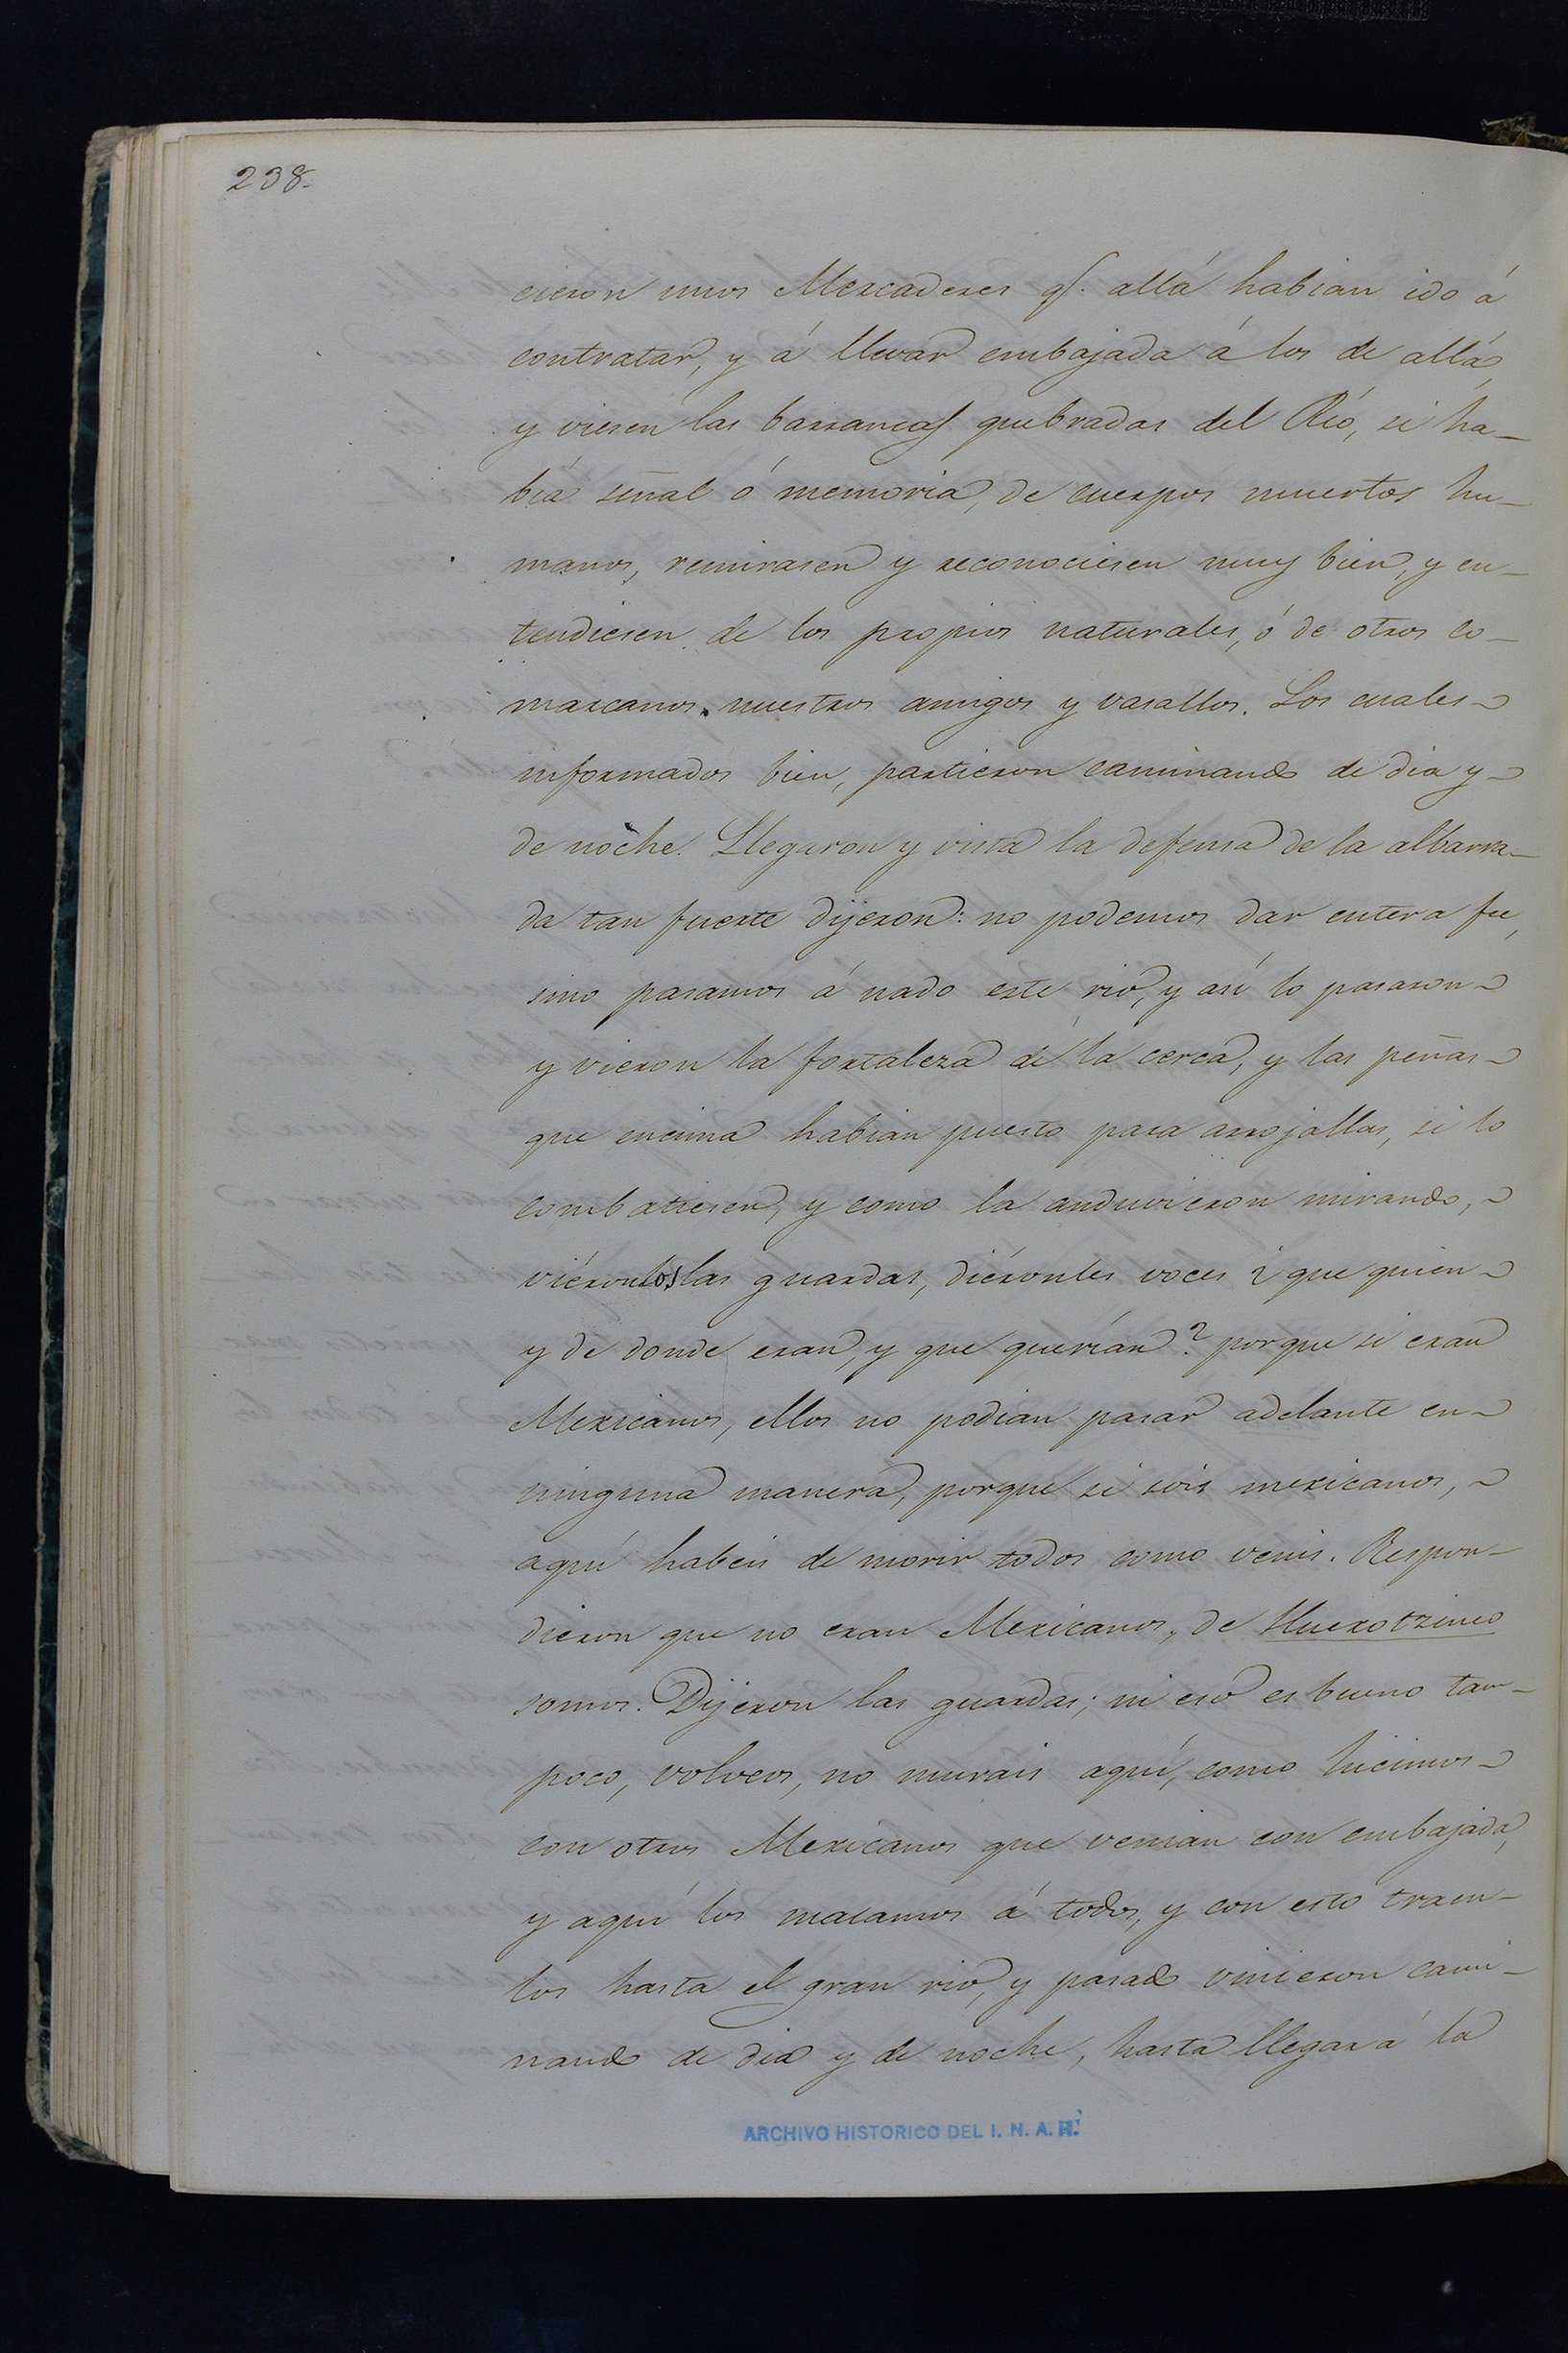 238.
cieron unos Mercaderes q.ᵉ allá habian ido á
contratar, y á llevar embajada á los de allá,
y viesen las barrancas quebradas del Rio, si ha-
bia señal ó memoria, de cuerpos muertos hu-
manos, remirasen y reconociesen muy bien, y en-
tendiesen de los propios naturales, ó de otros co-
marcanos nuestros amigos y vasallos. Los cuales
informados bien, partieron caminando de dia y
de noche. Llegaron y vista la defensa de la albarra-
da tan fuerte dijeron: no podemos dar entera fee,
sino pasamos á nado este rio, y asi lo pasaron
y vieron la fortaleza de la cerca, y las peñas
que encima habian puesto para arrojallas, si lo
combatiesen, y como la anduvieron mirando,
viéronlos las guardas, diéronles voces ¿que quien
y de donde eran, y que querían? porque si eran
Mexicanos, ellos no podian pasar adelante en
ninguna manera, porque si sois mexicanos,
aquí habeis de morir todos como venis. Respon-
dieron que no eran Mexicanos, de Huexotzinco
somos. Dijeron las guardas; ni eso es bueno tam-
poco, volveos, no murais aquí, como hicimos
con otros Mexicanos que venian con embajada,
y aquí los matamos á todos, y con esto traen-
los hasta el gran rio, y pasado vinieron cami-
nando de dia y de noche, hasta llegar á la
ARCHIVO HISTORICO DEL I. N. A. H.